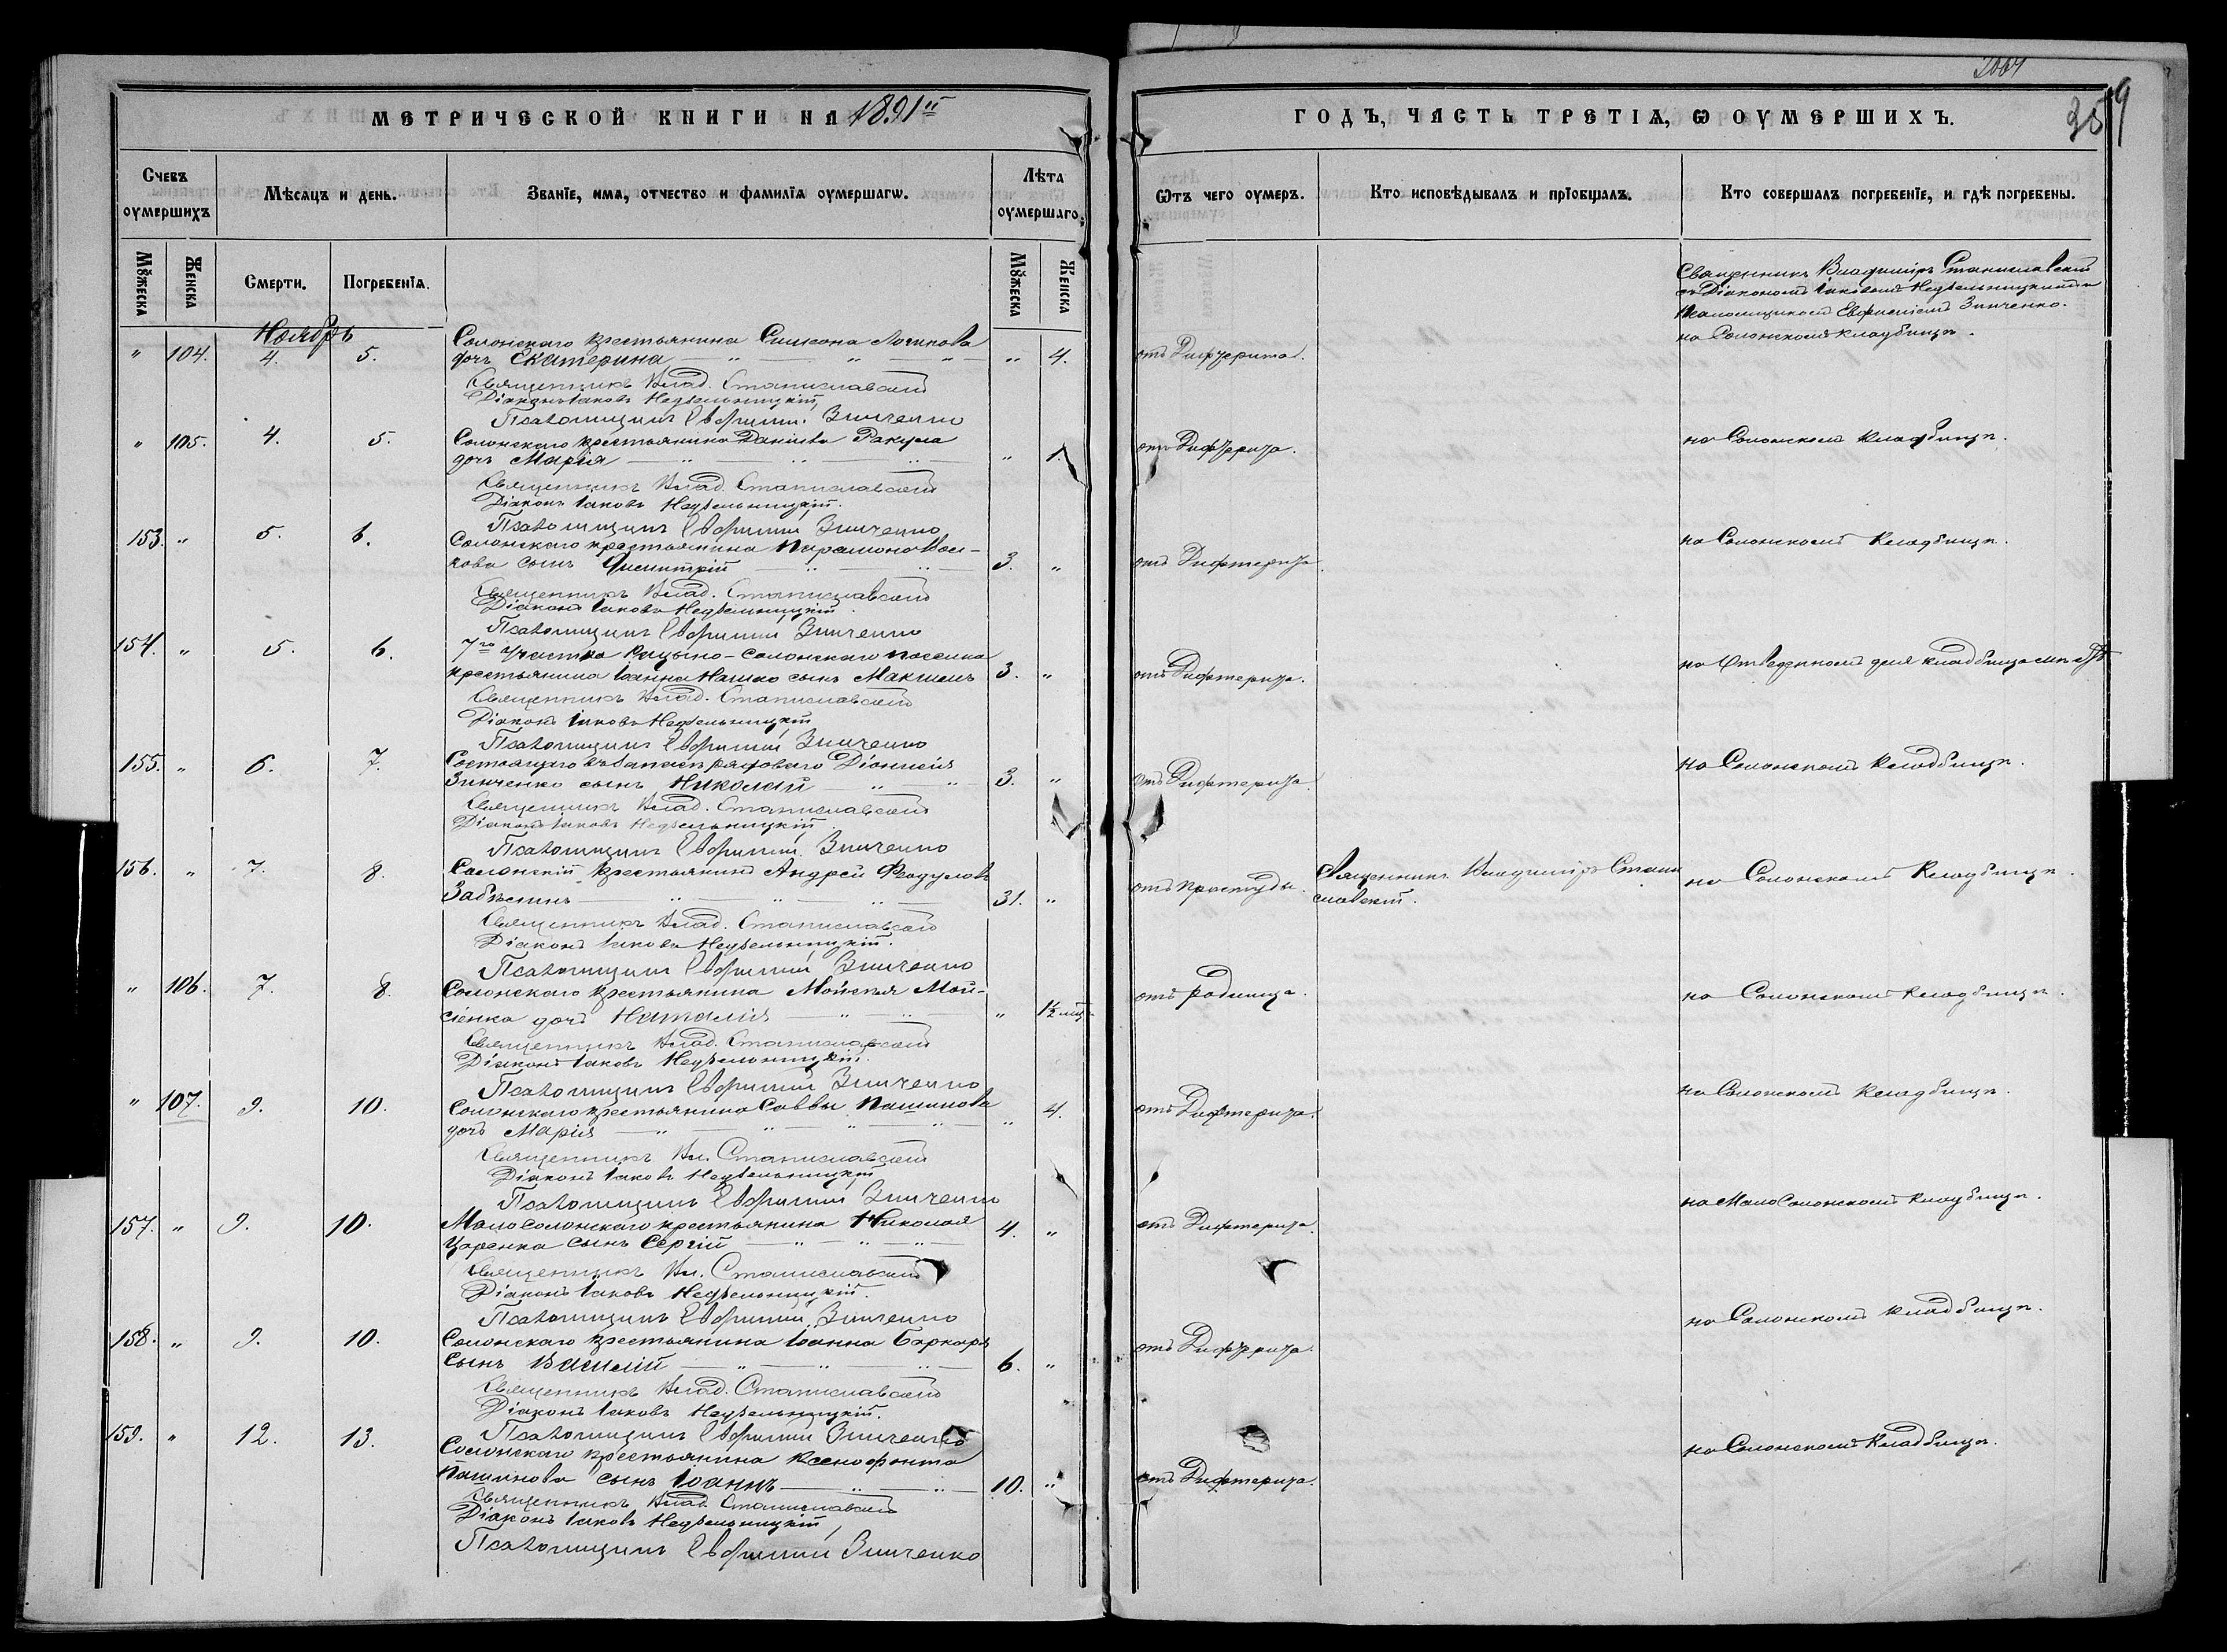 МЕТРИЧЕСКОЙ КНИГИ НА 1891й
Счевъ оумершихъ
Мѣсяцъ и день.
Званіе, имя, отчество и фамилія оумершагѡ.
Лѣта оумершаго.
Мꙋжеска
Женска
Смерти.
Погребенія.
Мꙋжеска
Женска
Ноябрь
" 104. 4. 5. Солонскаго крестьянина Симеона Логинова
дочь Екатерина — " — " — " — " 4.
Священникъ Влад. Станиславскій
Діаконъ Іаковъ Недѣльницкій
Псаломщикъ Евфимій Зинченко
" 105. 4. 5. Солонскаго крестьянина Даніила Ракула
дочь Марія — " — " — " — " 1.
Священникъ Влад. Станиславскій
Діаконъ Іаковъ Недѣльницкій.
Псаломщикъ Евфимій Зинченко
153. " 5. 6. Солонскаго крестьянина Парамона
сынъ Димитрій — " — " — 3. "
Священникъ Влад. Станиславскій
Діаконъ Іаковъ Недѣльницкій.
Псаломщикъ Евфимій Зинченко
154. " 5. 6. 7го участка Кацыно-Солонскаго поселка
крестьянина Іоанна Нашко сынъ Максимъ 3. "
Священникъ Влад. Станиславскій
Діаконъ Іаковъ Недѣльницкій
Псаломщикъ Евфимій Зинченко
155. " 6. 7. Состоящаго въ запасѣ рядового Діонисія
Зинченко сынъ Николай — " — " 3. "
Священникъ Влад. Станиславскій
Діаконъ Іаковъ Недѣльницкій
Псаломщикъ Евфимій Зинченко
156. " 7. 8. Солонскій крестьянинъ Андрей Феодуловъ
— " — " — " — 31. "
Священникъ Влад. Станиславскій
Діаконъ Іаковъ Недѣльницкій.
Псаломщикъ Евфимій Зинченко
" 106. 7. 8. Солонскаго крестьянина Мойсея Мой-
сіенка дочь Наталія — " — " — " 1½ мѣс
Священникъ Влад. Станиславскій
Діаконъ Іаковъ Недѣльницкій.
Псаломщикъ Евфимій Зинченко
" 107. 9. 10. Солонскаго крестьянина Саввы Пашинова
дочь Марія — " — " — " — " — " 4.
Священникъ Вл. Станиславскій
Діаконъ Іаковъ Недѣльницкій
Псаломщикъ Евфимій Зинченко
157. " 9. 10. Мало Солонскаго крестьянина Николая
Царенка сынъ Сергій — " — " — " — 4. "
Священникъ Вл. Станиславскій
Діаконъ Іаковъ Недѣльницкій.
Псаломщикъ Евфимій Зинченко
158. " 9. 10. Солонскаго крестьянина Іоанна Баркаря
сынъ Василій — " — " — " — 6. "
Священникъ Влад. Станиславскій
Діаконъ Іаковъ Недѣльницкій.
Псаломщикъ Евфимій Зинченко
159. " 12. 13. Солонскаго крестьянина Ксенофонта
Пашинова сынъ Іоаннъ — " — " — 10. "
Священникъ Влад. Станиславскій
Діаконъ Іаковъ Недѣльницкій
Псаломщикъ Евфимій Зинченко
359
ГОДЪ, ЧАСТЬ ТРЕТІѦ, Ѡ ОУМЕРШИХЪ.
Ѿтъ чего оумеръ.
Кто исповѣдывалъ и пріобщалъ.
Кто совершалъ погребеніе, и гдѣ погребены.
Священникъ Владиміръ Станиславскій
съ Діакономъ Іаковомъ Недѣльницкимъ и
Псаломщикомъ Евфиміемъ Зинченко.
на Солонскомъ кладбищѣ.
отъ Дифтерита.
отъ Дифтерита. на Солонскомъ кладбищѣ.
отъ Дифтерита. на Солонскомъ кладбищѣ.
отъ Дифтерита. на Отведенномъ для кладбища мѣстѣ
отъ Дифтерита. на Солонскомъ кладбищѣ.
отъ простуды. Священникъ Владиміръ Стани
славскій. на Солонскомъ кладбищѣ.
отъ родимца. на Солонскомъ кладбищѣ.
отъ Дифтерита. на Солонскомъ кладбищѣ.
отъ Дифтерита. на Мало Солонскомъ кладбищѣ.
отъ Дифтерита. на Солонскомъ кладбищѣ.
отъ Дифтерита. на Солонскомъ кладбищѣ.